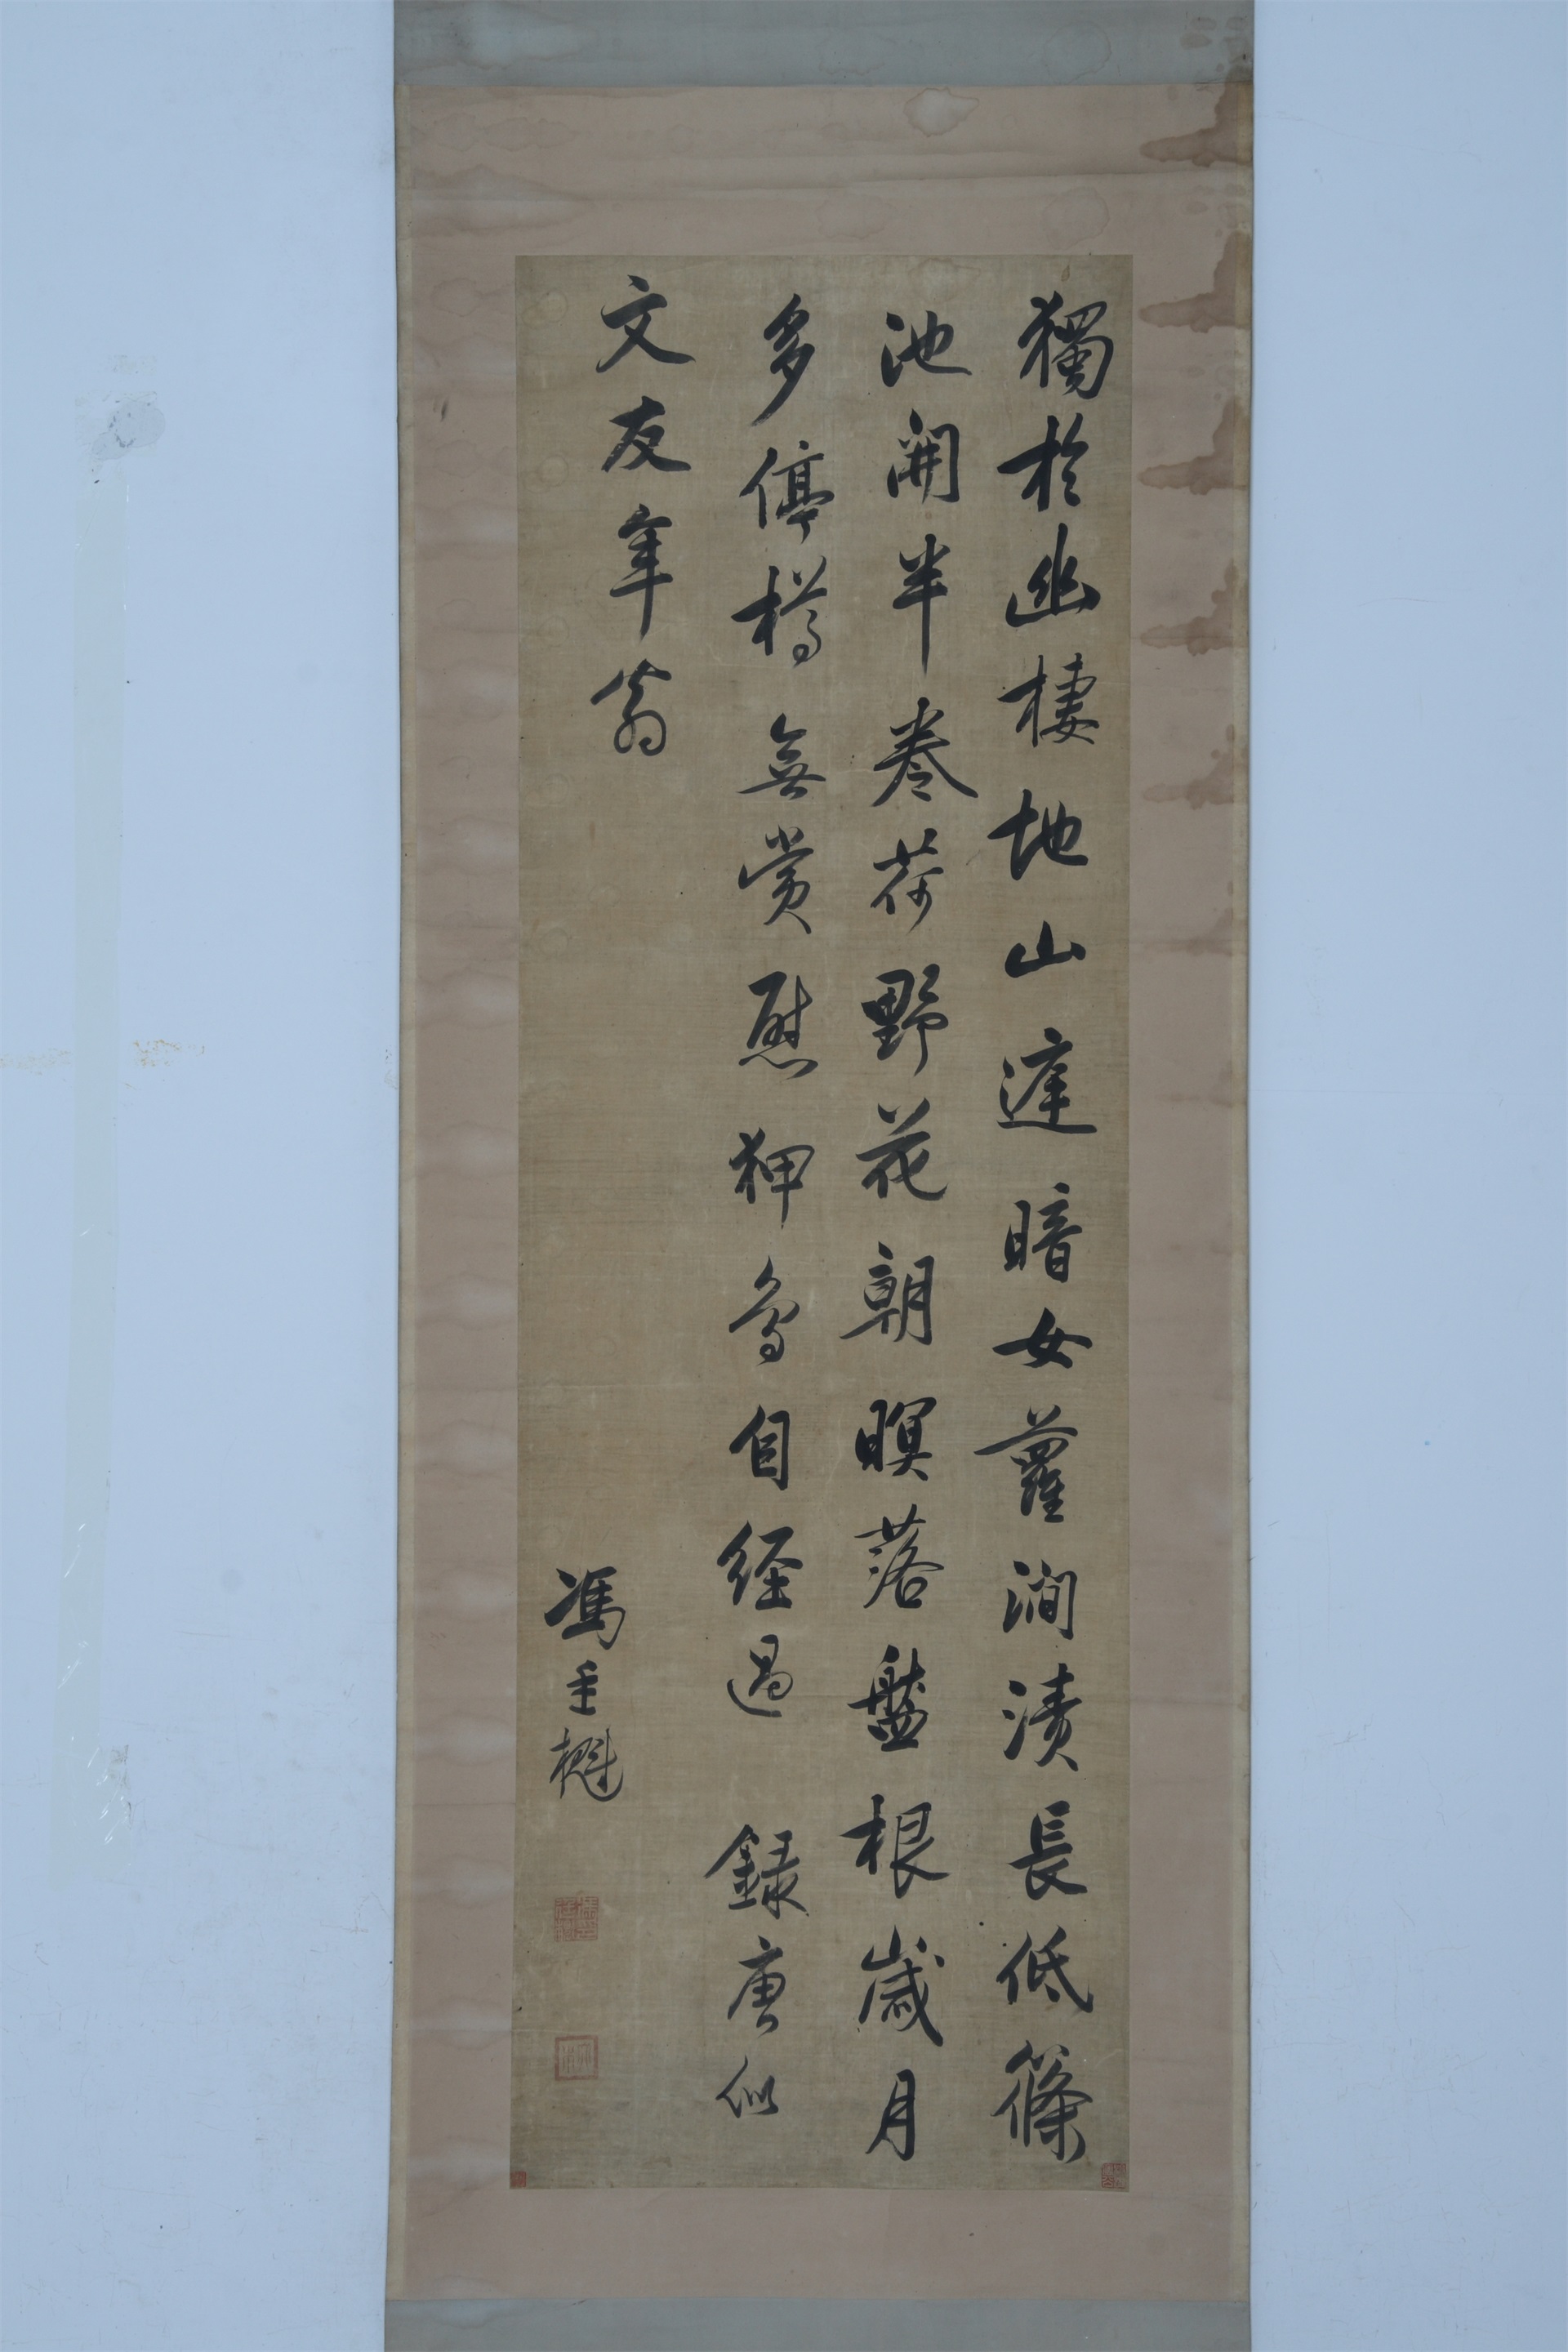 獨於幽棲地山庭暗女蘿澗漬長低篠
池開半卷荷野花朝暝落盤根歲月
多停樽無賞慰狎鳥自經過 錄唐似
文友年翁
馮廷櫆